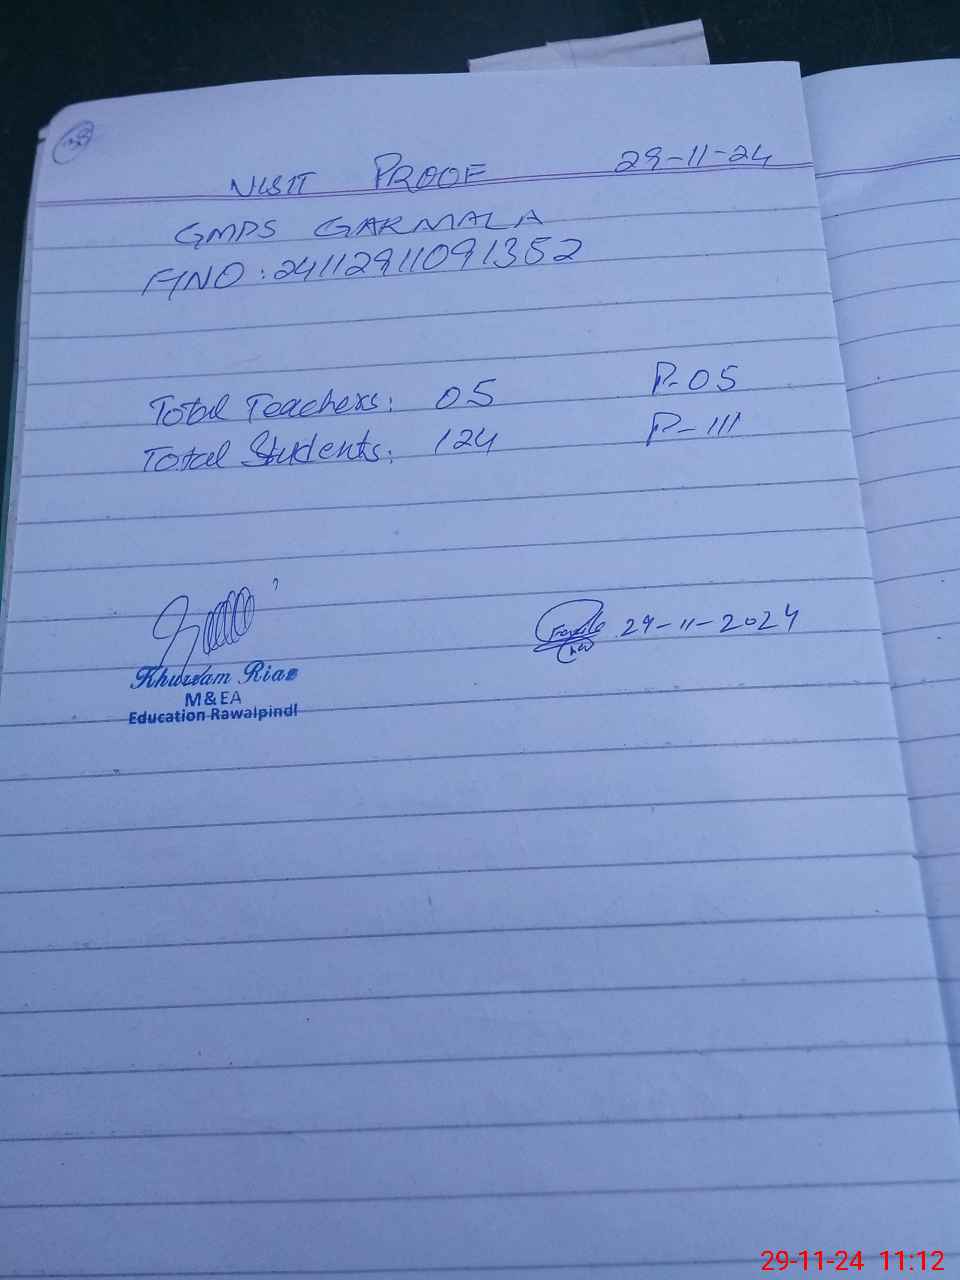 38
VISIT PROOF 29-11-24
GMPS GARMALA
A/NO: 2411291109 1352
Total Teachers: 05 P-05
Total Students: 124 P-111
29-11-2024
Khurram Riaz
M&EA
Education Rawalpindi
29-11-24 11:12